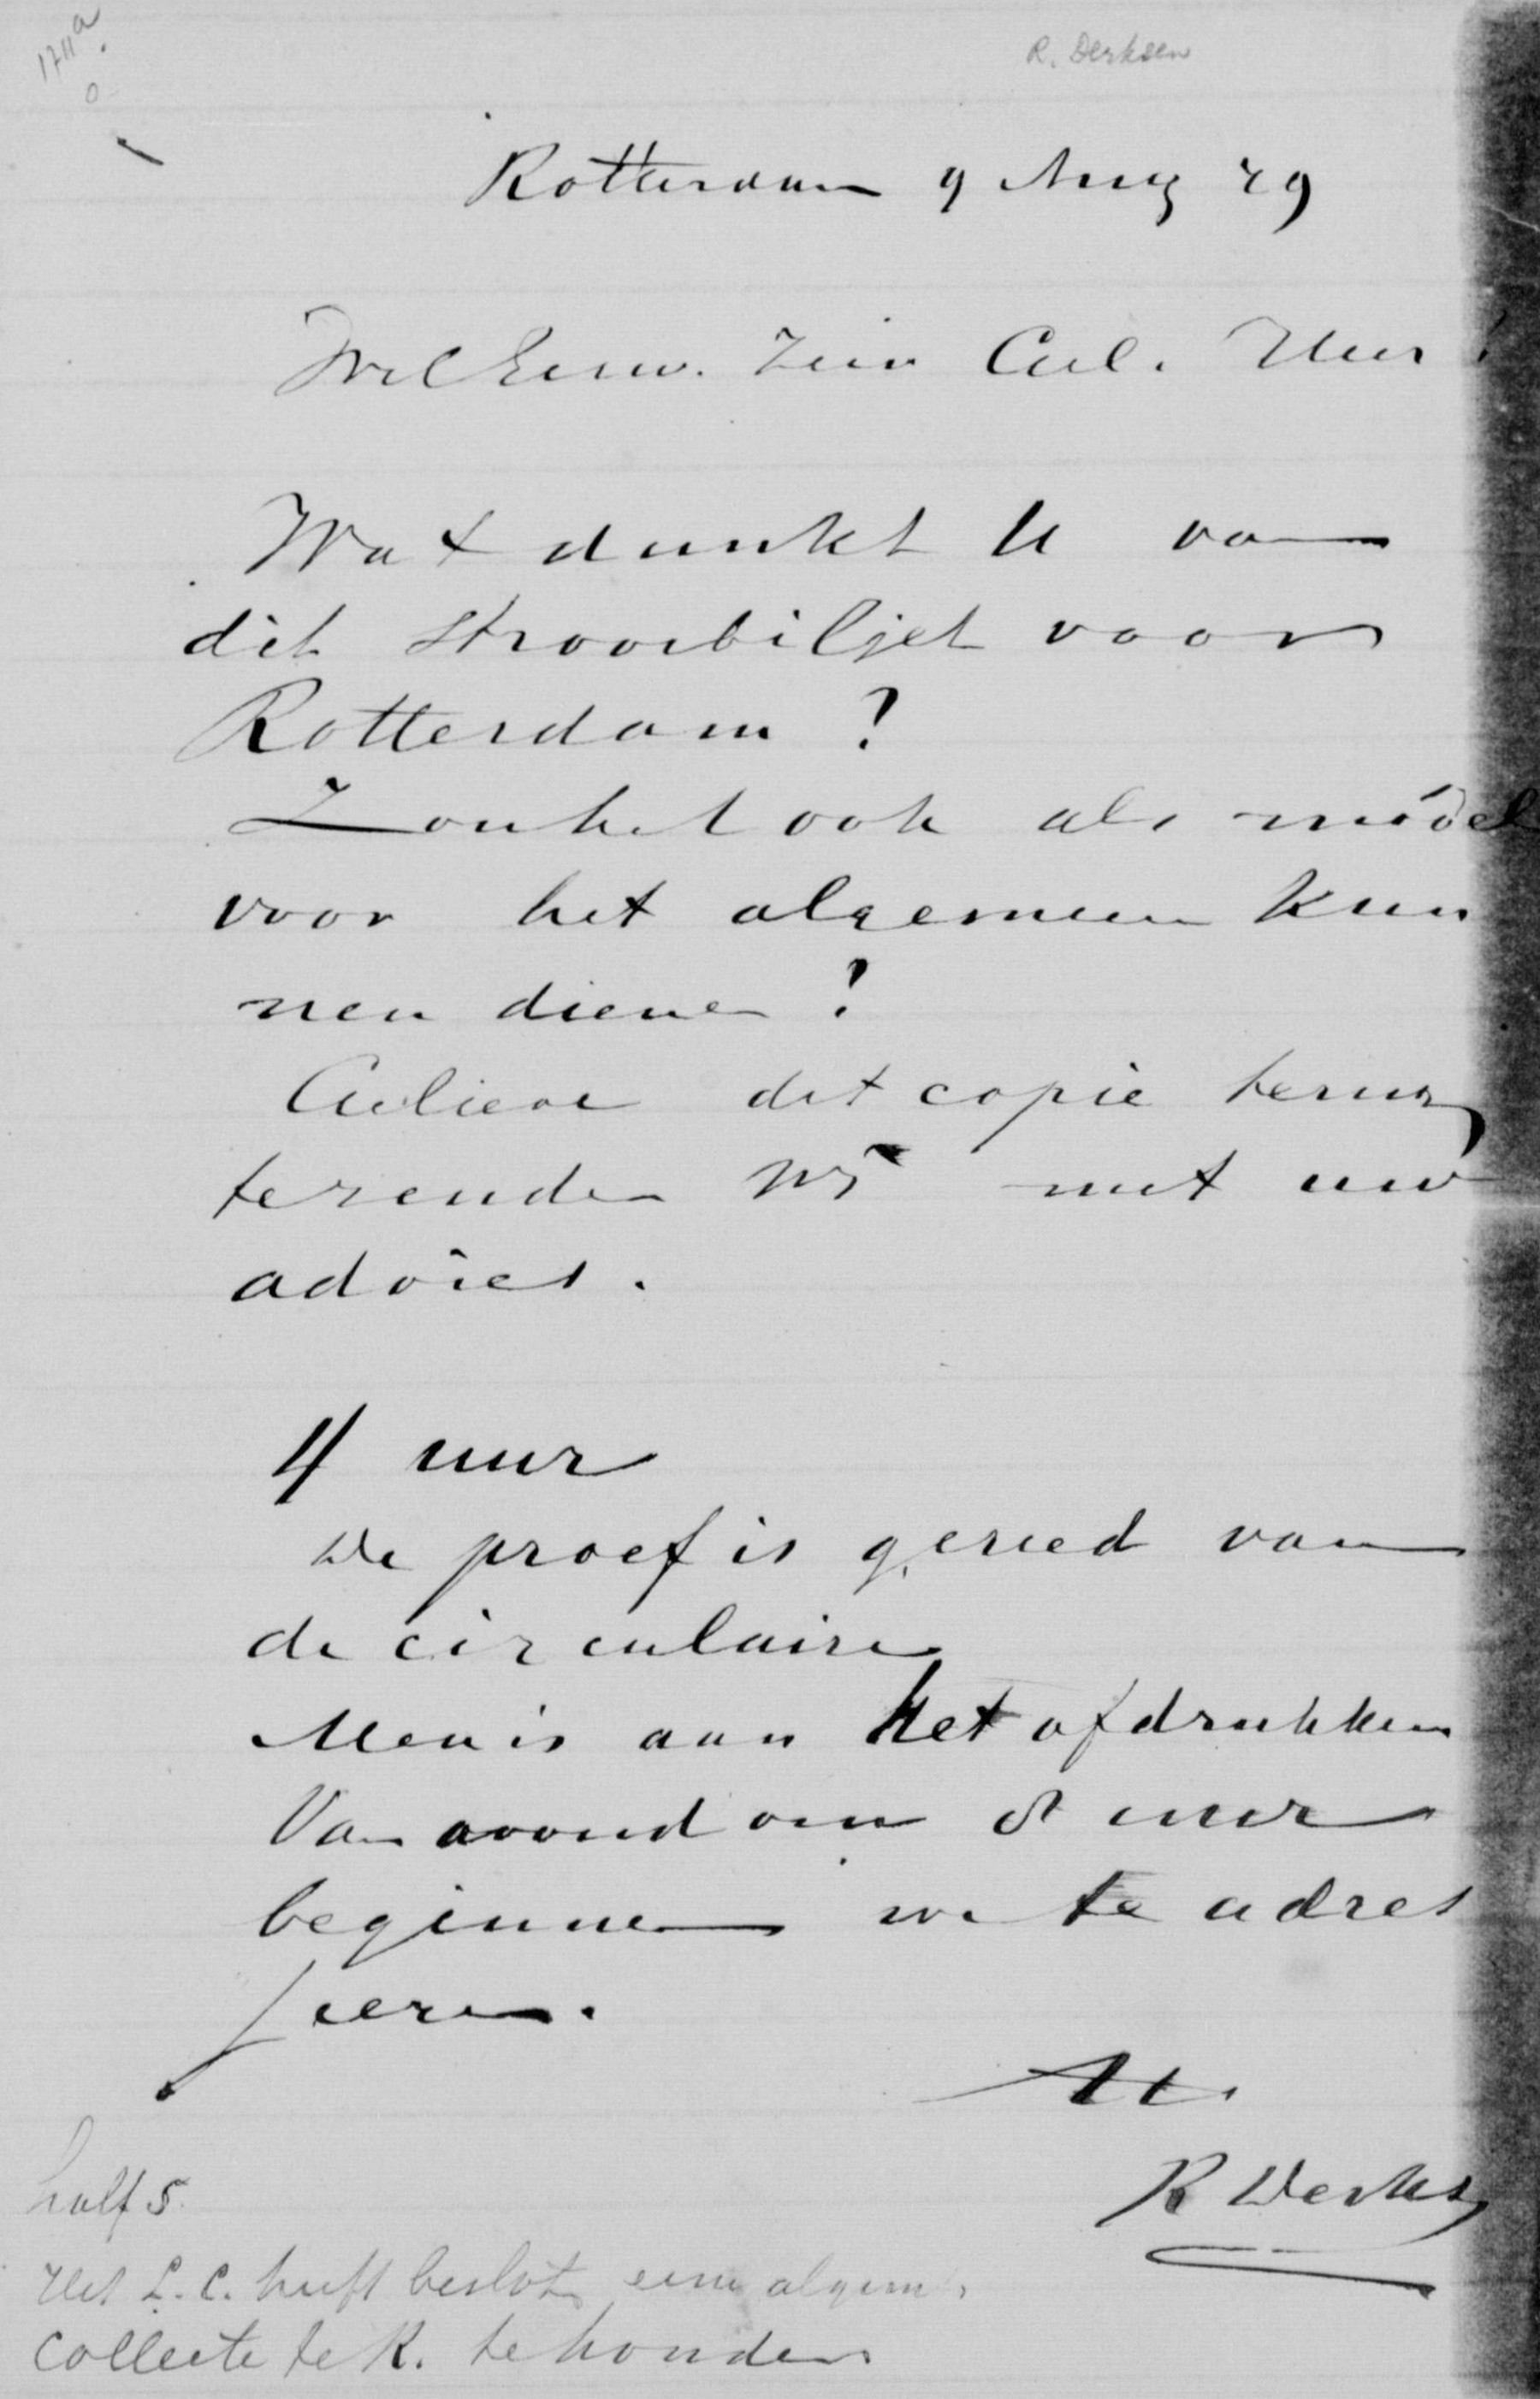 1711a
R. Derksen
Rotterdam 9 Aug 79
WelEerw. Zeer Gel. Heer!
Wat dunkt U van
dit strooibiljet voor
Rotterdam?
Zou het ook als model
voor het algemeen kun
nen dienen?
Gelieve dit copie terug
te zenden mij met uw
advies.
4 uur
De proef is gereed van
de circulaire
Men is aan het afdrukken
Van avond om 8 uur
beginnen we te adres
seeren.
R Derks
half 5.
Het L.C. heeft besloten eene algem.
collecte te R. te houden